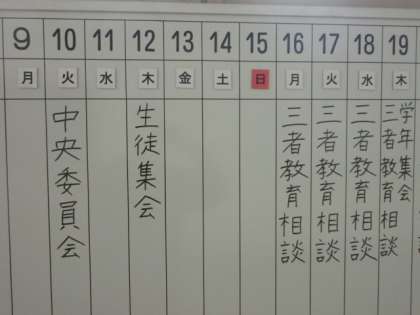 9 10 11 12 13 14 15 16 17 18 19
月 火 水 木 金 土 日 月 火 水 木
中央委員会
生徒集会
三者教育相談
三者教育相談
三者教育相談
学年集会
三者教育相談